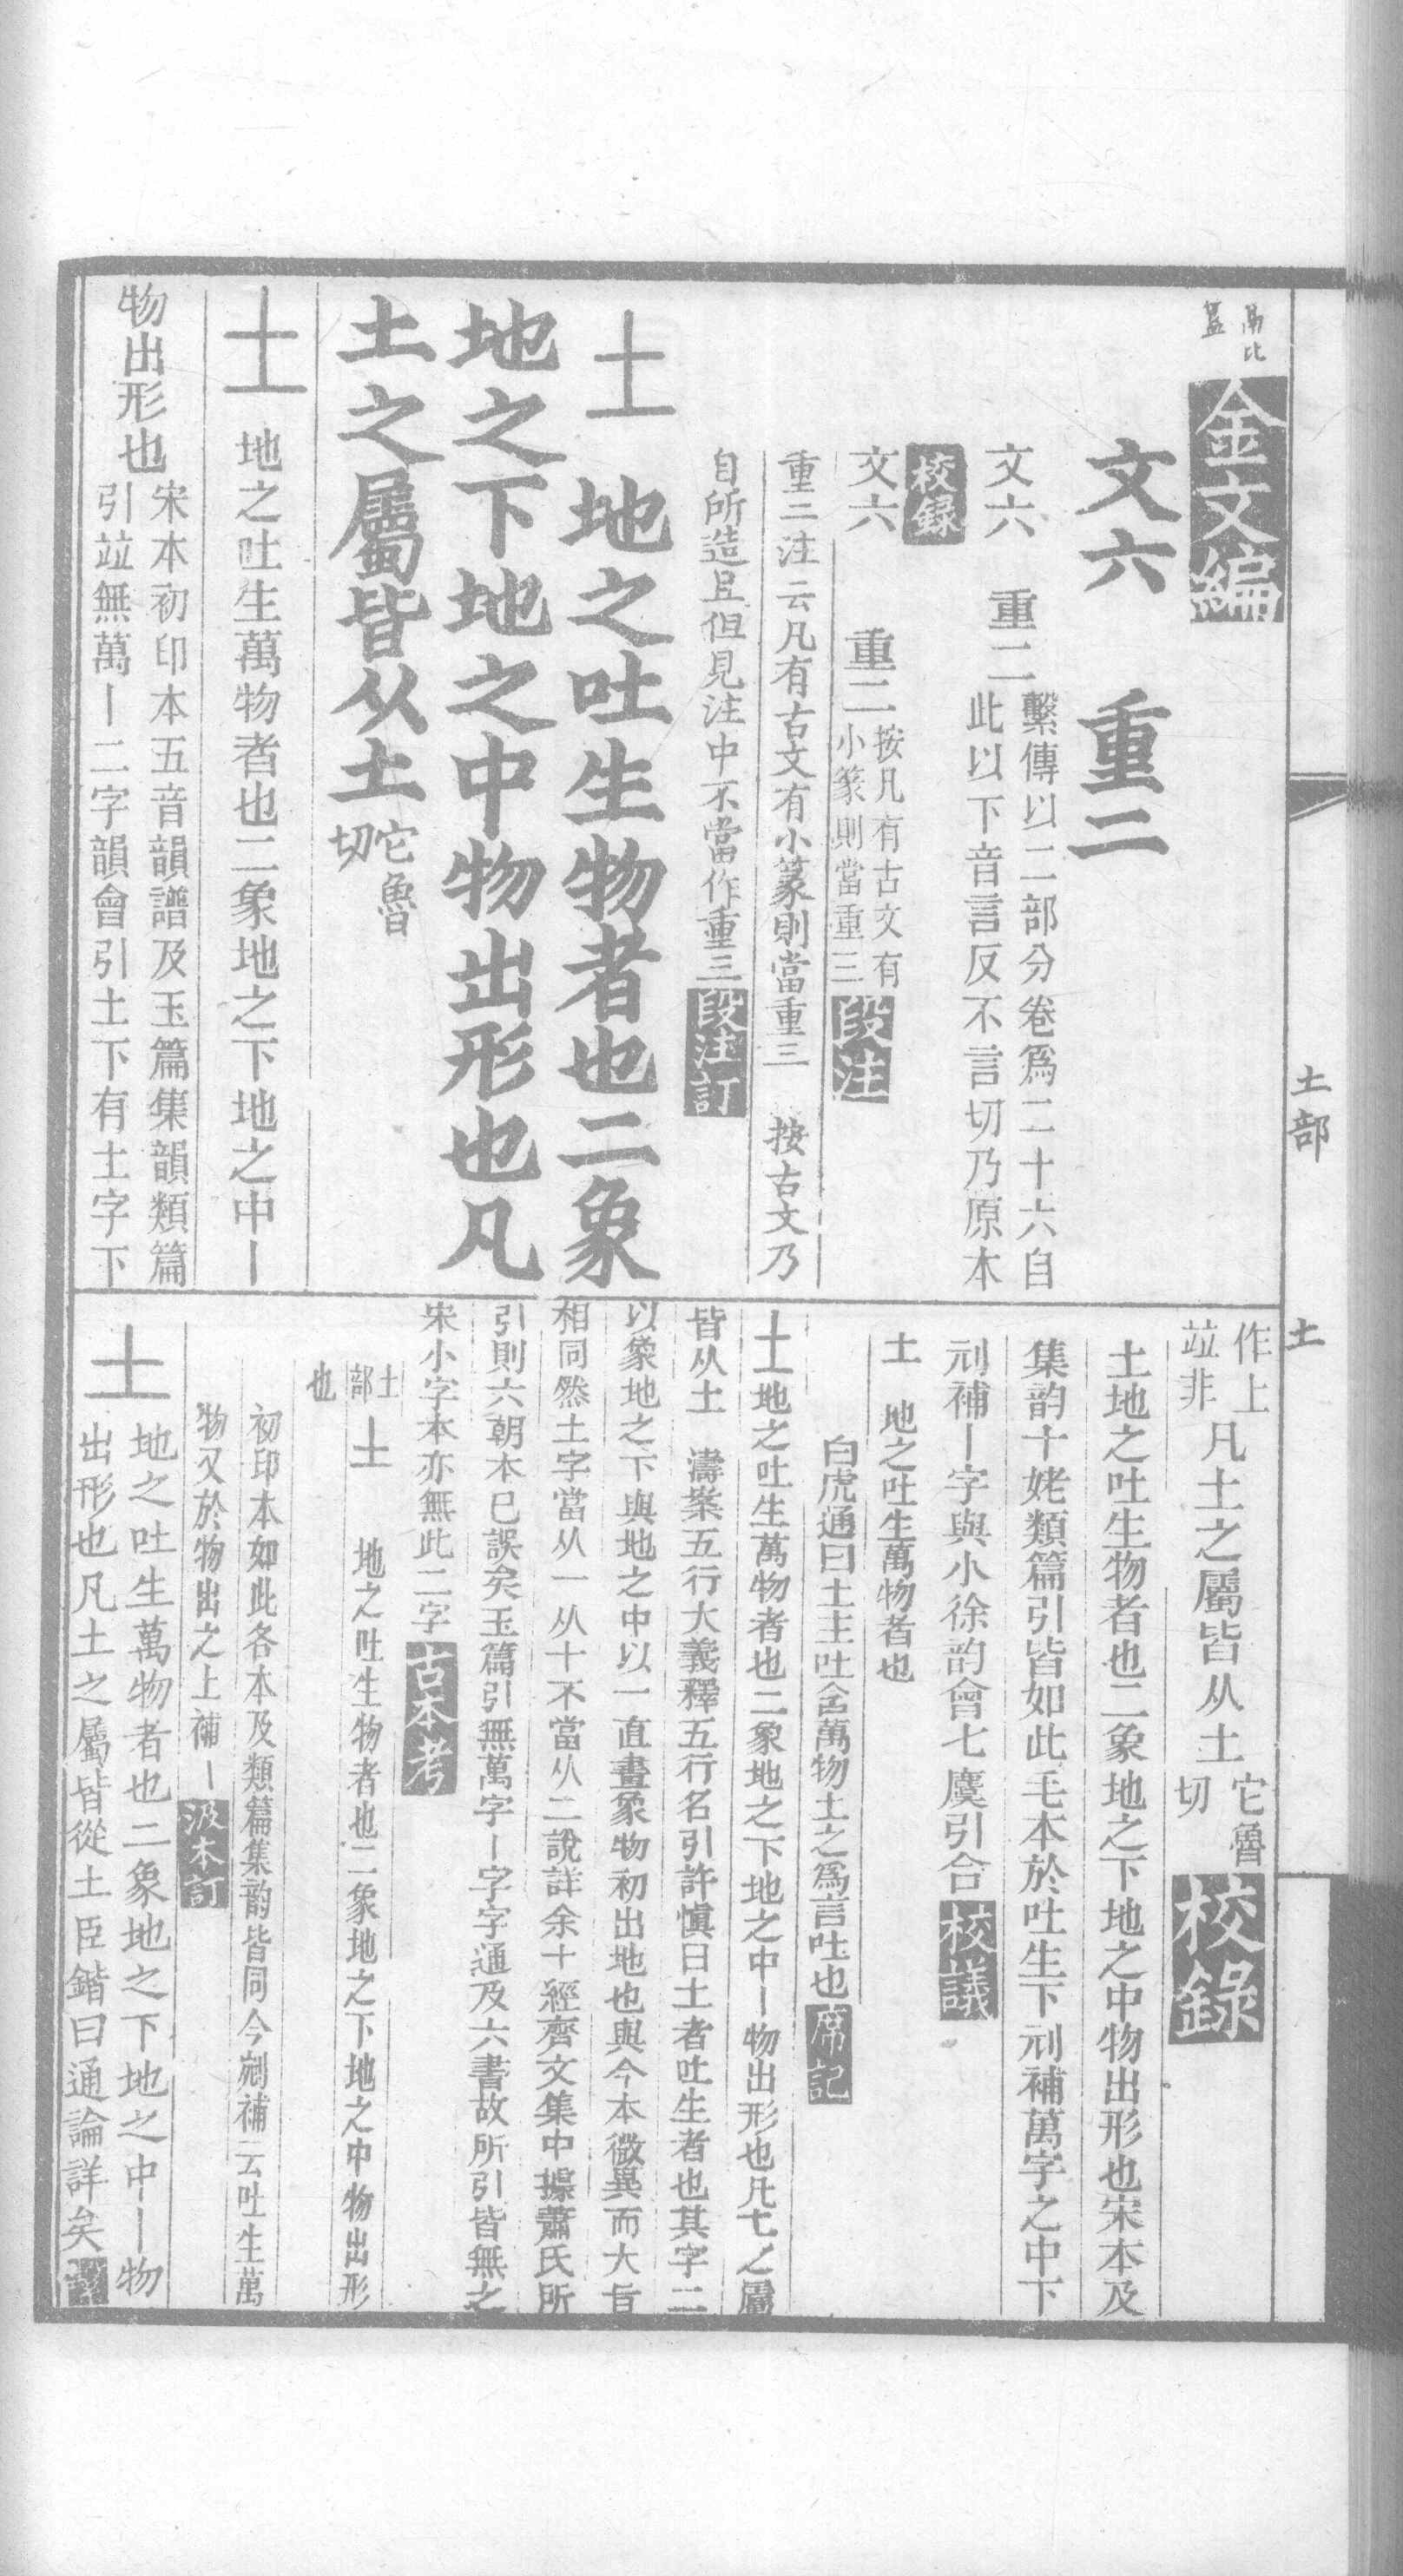 鬲比
盨
金文編
文六　重二
文六　重二
繫傳以二部分卷爲二十六自
此以下音言反不言切乃原本
校録
文六　重二
按凡有古文有
小篆則當重三
段注
重二注云凡有古文有小篆則當重三　按古文乃
自所造且但見注中不當作重三
段注訂
土　地之吐生物者也二象
地之下地之中物出形也凡
土之屬皆从土
它魯
切
土　地之吐生萬物者也二象地之下地之中丨
物出形也
宋本初印本五音韻譜及玉篇集韻類篇
引竝無萬丨二字韻會引土下有土字下
作上
竝非
凡土之屬皆从土
它魯
切
校錄
土地之吐生物者也二象地之下地之中物出形也宋本及
集韵十姥類篇引皆如此毛本於吐生下刓補萬字之中下
刓補丨字與小徐韵會七麌引合
校議
土　地之吐生萬物者也
白虎通曰土主吐含萬物土之爲言吐也
席記
土地之吐生萬物者也二象地之下地之中丨物出形也凡土之屬
皆从土　濤案五行大義釋五行名引許愼曰土者吐生者也其字二
以象地之下與地之中以一直畫象物初出地也與今本微異而大旨
相同然土字當从一从十不當从二說詳余十經齊文集中據蕭氏所
引則六朝本已誤矣玉篇引無萬字丨字字通及六書故所引皆無之
宋小字本亦無此二字
古本考
土
部
土　地之吐生物者也二象地之下地之中物出形
也
初印本如此各本及類篇集韵皆同今剜補云吐生萬
物又於物出之上補丨
汲本訂
土
地之吐生萬物者也二象地之下地之中丨物
出形也凡土之屬皆從土臣鍇曰通論詳矣
土部
土